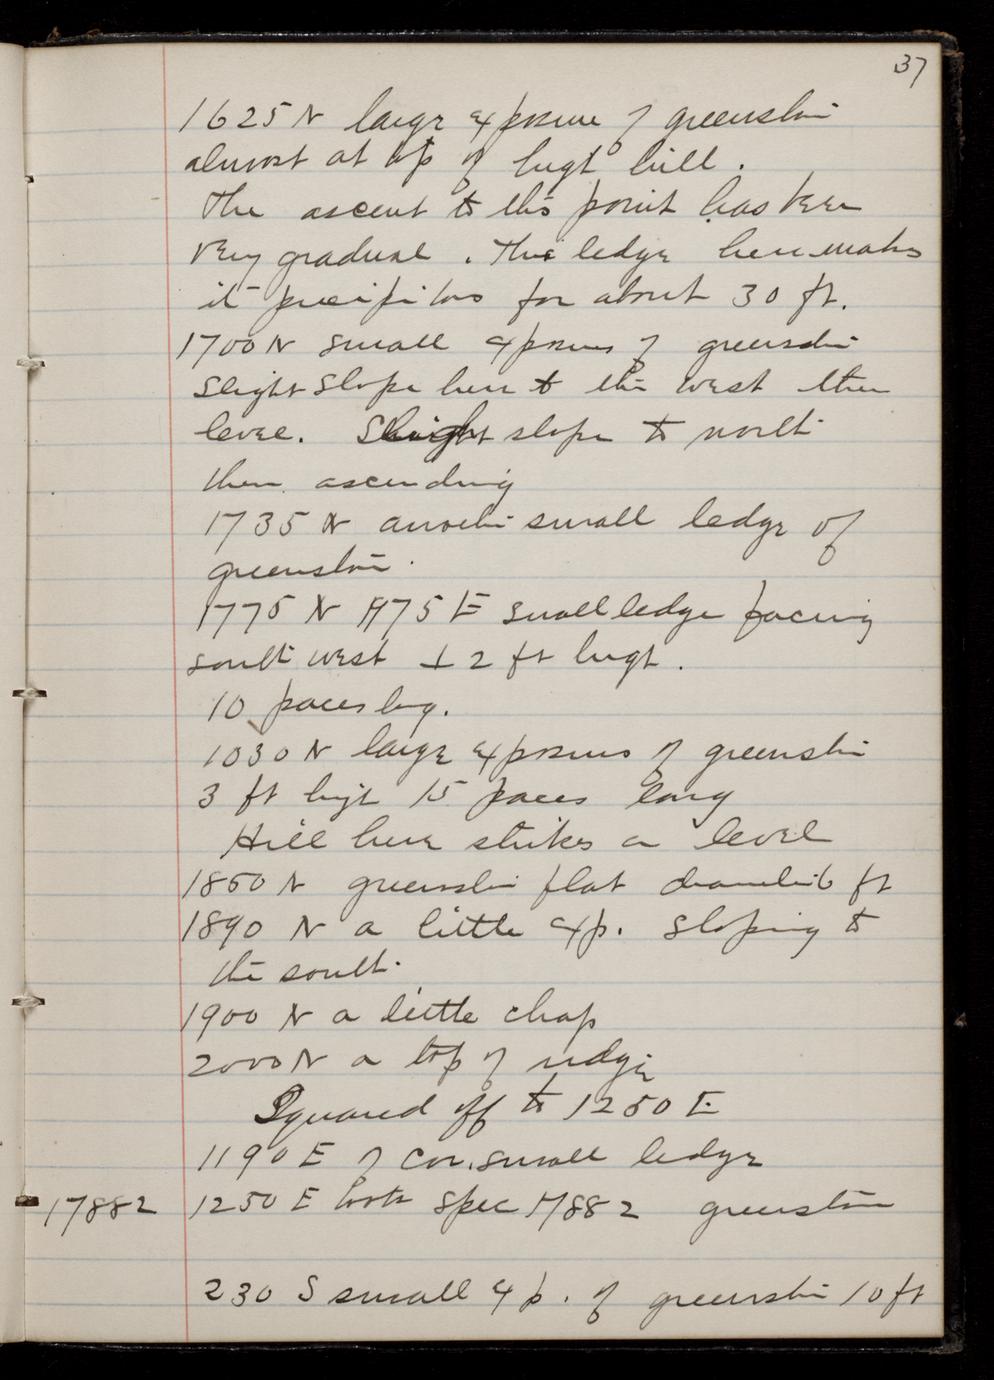 37
1625 N large exposure of greenstone
almost at top of hight hill.
The ascent to this point has been
very gradual. The ledge here makes
it precipitous for about 30 ft.
1700 N small exposures of greenstone
slight slope here to the west then
level. Slight slope to north
then ascending
1735 N another small ledge of
greenstone.
1775 N 1175 E small ledge facing
south west 12 ft hight.
10 paces long.
1030 N large exposures of greenstone
3 ft high 15 paces long
Hill here strikes a level
1850 N greenstone flat 6 ft
1890 N a little exp. sloping to
the south.
1900 N a little chap
2000 N a top of ridge
Squared off to 1250 E
1190 E of cor. small ledge
17882 1250 E took spec 17882 greenstone
230 S small exp. of greenstone 10 ft